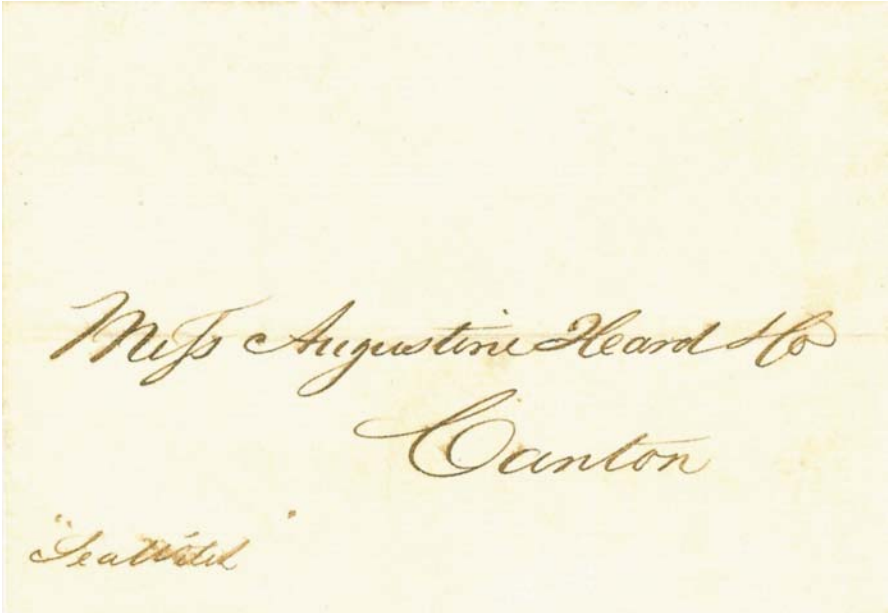 Mess Augustine Heard & Co
Canton
"Sea Witch"